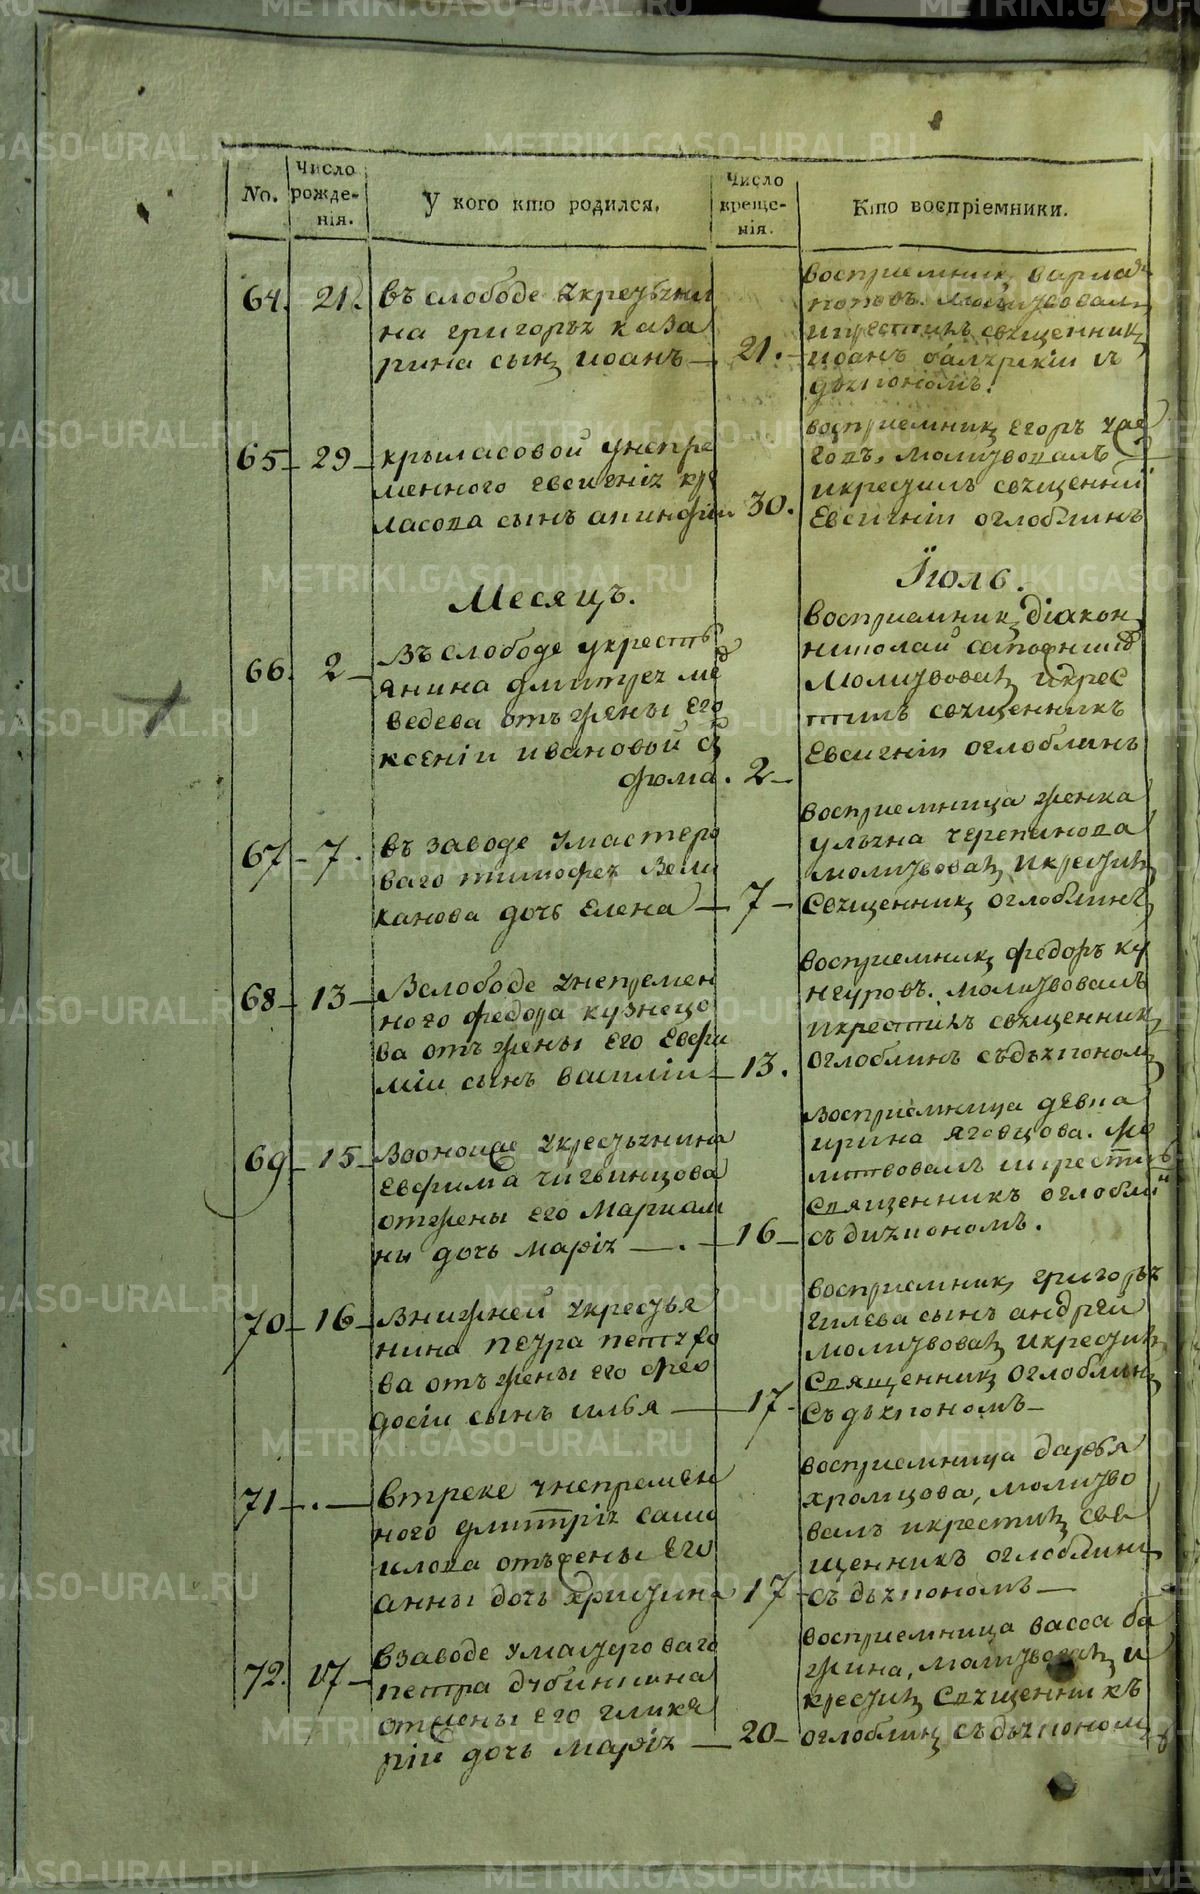 No.
Число рожде-нія.
У кого кто родился.
Число креще-нія.
Кто воспріемники.
64. 21. въ слободе укрестьяни
на григорья каза
рина сынъ иоанъ — 21.
воспиемник
молитвовалъ
икрестилъ священникъ
иоанъ
дьякономъ.
65 29 крыласовой унепре
менного евсигнія кры
ласова сынъ 30.
восприемникъ егоръ
молитвовалъ
икрестилъ священникъ
Евсигній оглоблинъ
Месяцъ. Їюль.
66. 2 Въ слободе укресть
янина дмитрея ме
ведева отъ жены его
ксеніи ивановой сы
фома. 2
восприемникъ діаконъ
николай
Молитвовалъ икрес
тилъ священникъ
Евсигній оглоблинъ
67 7. въ заводе умастеро
ваго тимофея Вели
канова дочь Елена — 7
восприемница женка
ульяна черепанова
молитвовалъ икрестилъ
Священникъ оглоблинъ
68 13 Вслободе унепремен
ного федора кузнецо
ва отъ жены его Евфи
міи сынъ василіи 13.
восприемникъ федоръ ку
нгуровъ. молитвовалъ
икрестилъ священникъ
оглоблинъ съдьякономъ
69 15 укрестьянина
Евфима чигвинцова
отжены его Мариам
ны дочь марія — 16
Восприемница девка
ирина яговцова. мо
литвовалъ икрестилъ
Священникъ оглобли
съ диякономъ.
70 16 Внижней укрестья
нина петра
ва отъ жены его фео
досіи сынъ илья — 17
восприемникъ григорья
гилева сынъ андрей
молитвовалъ икрестилъ
Священникъ оглоблинъ
Съ дьякономъ
71 . втреке унепремен
ного дмитрія сама
илова отъжены Его
анны дочь християна 17
восприемница дарья
хромцова, молитво
валъ икрестилъ свя
щенникъ оглоблинъ
съ дьякономъ
72. 17 взаводе умастероваго
петра дубинкина
отжены его глике
ріи дочь марія — 20
восприемница васса ба
жина, молитвовалъ и
крестилъ Священникъ
оглоблинъ съ дьякономъ
METRIKI.GASO-URAL.RU